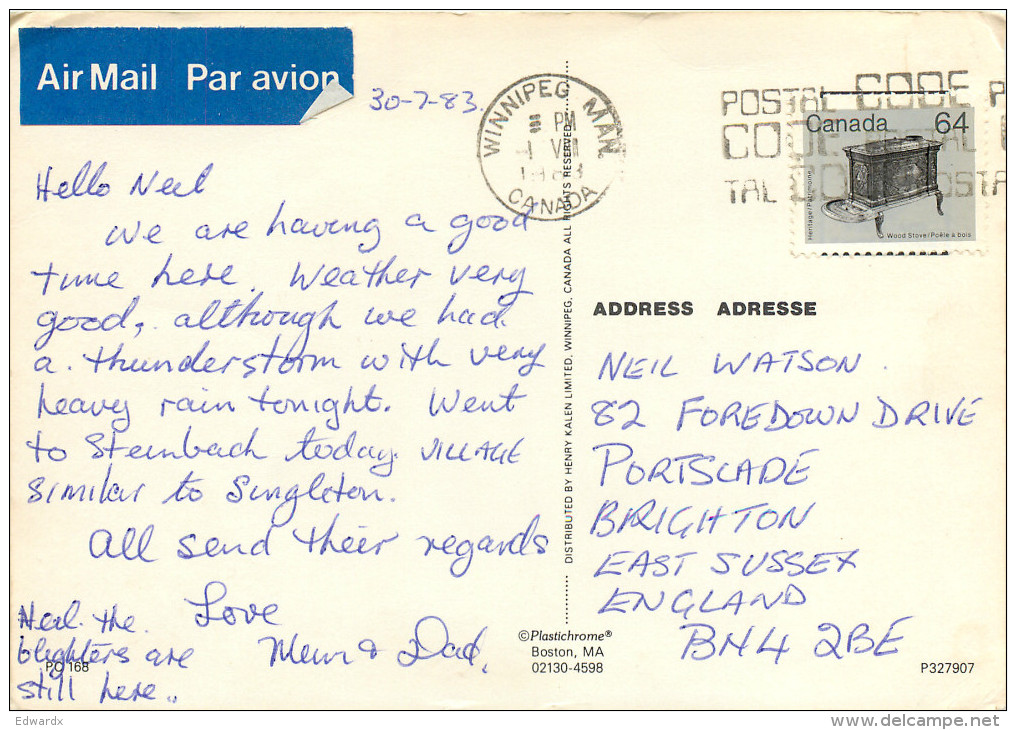 Air Mail Par avion
30-7-83.
Hello Neil
We are having a good
time here. Weather very
good, although we had
a thunderstorm with very
heavy rain tonight. Went
to Steinbach today. VILLAGE
similar to Singleton.
All send their regards
Love
Mum & Dad.
Neil. the
blighters are
still here..
PC 168
WINNIPEG MAN.
PM
1 VIII
1983
CANADA
DISTRIBUTED BY HENRY KALEN LIMITED, WINNIPEG, CANADA ALL RIGHTS RESERVED
POSTAL CODE
Canada 64
Heritage/Patrimoine
Wood Stove/Poêle à bois
ADDRESS ADRESSE
NEIL WATSON.
82 FOREDOWN DRIVE
PORTSLADE
BRIGHTON
EAST SUSSEX
ENGLAND
BN4 2BE
©Plastichrome®
Boston, MA
02130-4598
P327907
Edwardx
delcampe.net